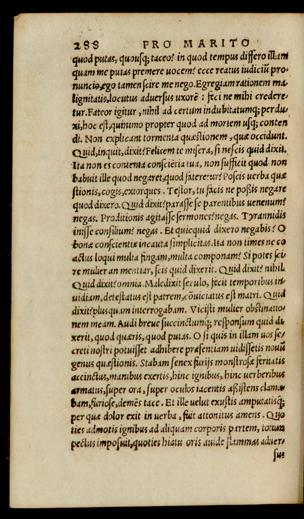 288 PRO MARITO
quod putas, quousq; taceo? in quod tempus differo illam
quam me putas premere uocem? ecce reatus iudiciũ pro-
nuncio, ego tamen scire me nego. Egregiam rationem ma-
lignitatis, locutus aduersus uxorẽ : feci ne mihi credere-
tur. Fateor igitur, nihil ad certum indubitatumq; perdu-
xi, hoc est, quinimo propter quod ad mortem usq; conten
di. Non explicant tormenta quæstionem, quæ occidunt.
Quid, inquit, dixit? Felicem te misera, si nescis quid dixit.
Ita non es contenta consciẽtia tua, non sufficit quod non
habuit ille quod negaret, quod fateretur? Poscis uerba quæ
stionis, cogis, extorques. Testor, tu facis ne possis negare
quod dixero. Quid dixit? parasse se parentibus uenenum?
negas. Proditionis agitasse sermones? negas. Tyrannidis
inisse consilium? negas. Et quicquid dixero negabis? O
bonæ conscientiæ incauta simplicitas. Ita non times ne co
actus loqui multa fingam, multa componam? Si potes sci-
re mulier an mentiar, scis quid dixerit. Quid dixit? nihil.
Quid dixit? omnia. Maledixit seculo, fecit temporibus in-
uidiam, detestatus est patrem, cõuiciatus est matri. Quid
dixit? plus quam interrogabam. Vicisti mulier obstinatio-
nem meam. Audi breue succinctumq; responsum quid di-
xerit, quod quæris, quod putas. O si quis in illam uos se-
creti nostri potuisset adhibere præsentiam uidissetis nouũ
genus quæstionis. Stabam senex furijs monstrosæ feritatis
accinctus, manibus exertis, hinc ignibus, hinc uerberibus
armatus, super ora, super oculos iacentis assistens clama-
bam, furiose, demẽs tace. Et ille uelut exustis amputatisq;
per quæ dolor exit in uerba, fiat attonitus amens. Quo
ties admotis ignibus ad aliquam corporis partem, totum
pectus imposuit, quoties hiatu oris auide flammas aduer-
sus